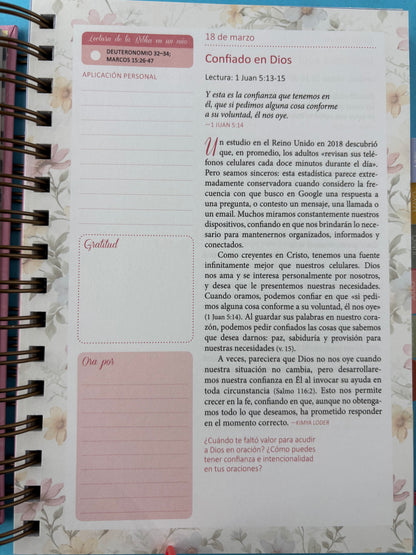 Lectura de la Biblia en un año
DEUTERONOMIO 32–34;
MARCOS 15:26-47
APLICACIÓN PERSONAL
Gratitud
Ora por
18 de marzo
Confiado en Dios
Lectura: 1 Juan 5:13-15
Y esta es la confianza que tenemos en
él, que si pedimos alguna cosa conforme
a su voluntad, él nos oye.
—1 JUAN 5:14
Un estudio en el Reino Unido en 2018 descubrió
que, en promedio, los adultos «revisan sus telé-
fonos celulares cada doce minutos durante el día».
Pero seamos sinceros: esta estadística parece extre-
madamente conservadora cuando considero la fre-
cuencia con que busco en Google una respuesta a
una pregunta, o contesto un mensaje, una llamada o
un email. Muchos miramos constantemente nuestros
dispositivos, confiando en que nos brindarán lo nece-
sario para mantenernos organizados, informados y
conectados.
Como creyentes en Cristo, tenemos una fuente
infinitamente mejor que nuestros celulares. Dios
nos ama y se interesa personalmente por nosotros,
y desea que le presentemos nuestras necesidades.
Cuando oramos, podemos confiar en que «si pedi-
mos alguna cosa conforme a su voluntad, él nos oye»
(1 Juan 5:14). Al guardar sus palabras en nuestro cora-
zón, podemos pedir confiados las cosas que sabemos
que desea darnos: paz, sabiduría y provisión para
nuestras necesidades (v. 15).
A veces, pareciera que Dios no nos oye cuando
nuestra situación no cambia, pero desarrollare-
mos nuestra confianza en Él al invocar su ayuda en
toda circunstancia (Salmo 116:2). Esto nos permite
crecer en la fe, confiando en que, aunque no obtenga-
mos todo lo que deseamos, ha prometido responder
en el momento correcto. —KIMYA LODER
¿Cuándo te faltó valor para acudir
a Dios en oración? ¿Cómo puedes
tener confianza e intencionalidad
en tus oraciones?